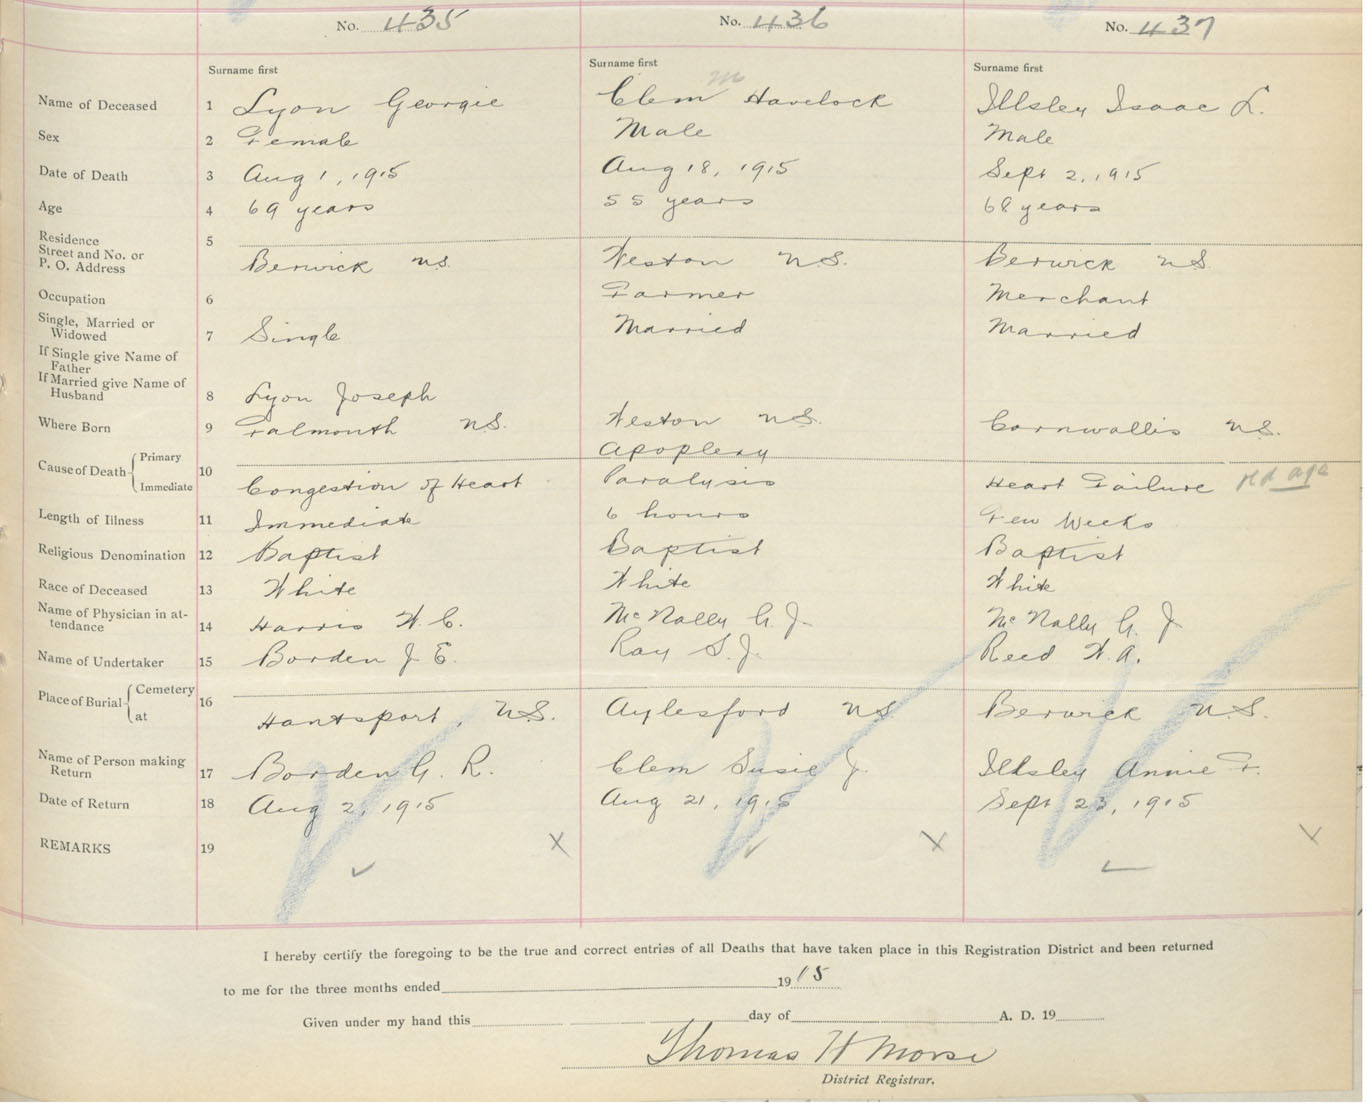 No. 435 No. 436 No. 437
Surname first Surname first Surname first
m
Name of Deceased 1 Lyon Georgie Clem Havelock Illsley Isaac L.
Sex 2 Female Male Male
Date of Death 3 Aug 1, 1915 Aug 18, 1915 Sept 2, 1915
Age 4 69 years 55 years 68 years
Residence
Street and No. or
P. O. Address 5 Berwick N.S. Weston N.S. Berwick N.S.
Occupation 6 Farmer Merchant
Single, Married or
Widowed 7 Single Married Married
If Single give Name of
Father
If Married give Name of
Husband 8 Lyon Joseph
Where Born 9 Falmouth N.S. Weston N.S. Cornwallis N.S.
Cause of Death Primary 10 Apoplexy
Immediate Congestion of Heart Paralysis Heart Failure old age
Length of Illness 11 Immediate 6 hours Few Weeks
Religious Denomination 12 Baptist Baptist Baptist
Race of Deceased 13 White White White
Name of Physician in at-
tendance 14 Harris W. C. McNally G. J. McNally G. J
Name of Undertaker 15 Borden J E. Ray S. J. Reed W. A.
Place of Burial Cemetery 16
at Hantsport, N.S. Aylesford N.S Berwick N.S.
Name of Person making
Return 17 Borden G. R. Clem Susie J. Illsley Annie F.
Date of Return 18 Aug 2, 1915 Aug 21, 1915 Sept 23, 1915
REMARKS 19
I hereby certify the foregoing to be the true and correct entries of all Deaths that have taken place in this Registration District and been returned
to me for the three months ended 1915
Given under my hand this day of A. D. 19
Thomas H Morse
District Registrar.